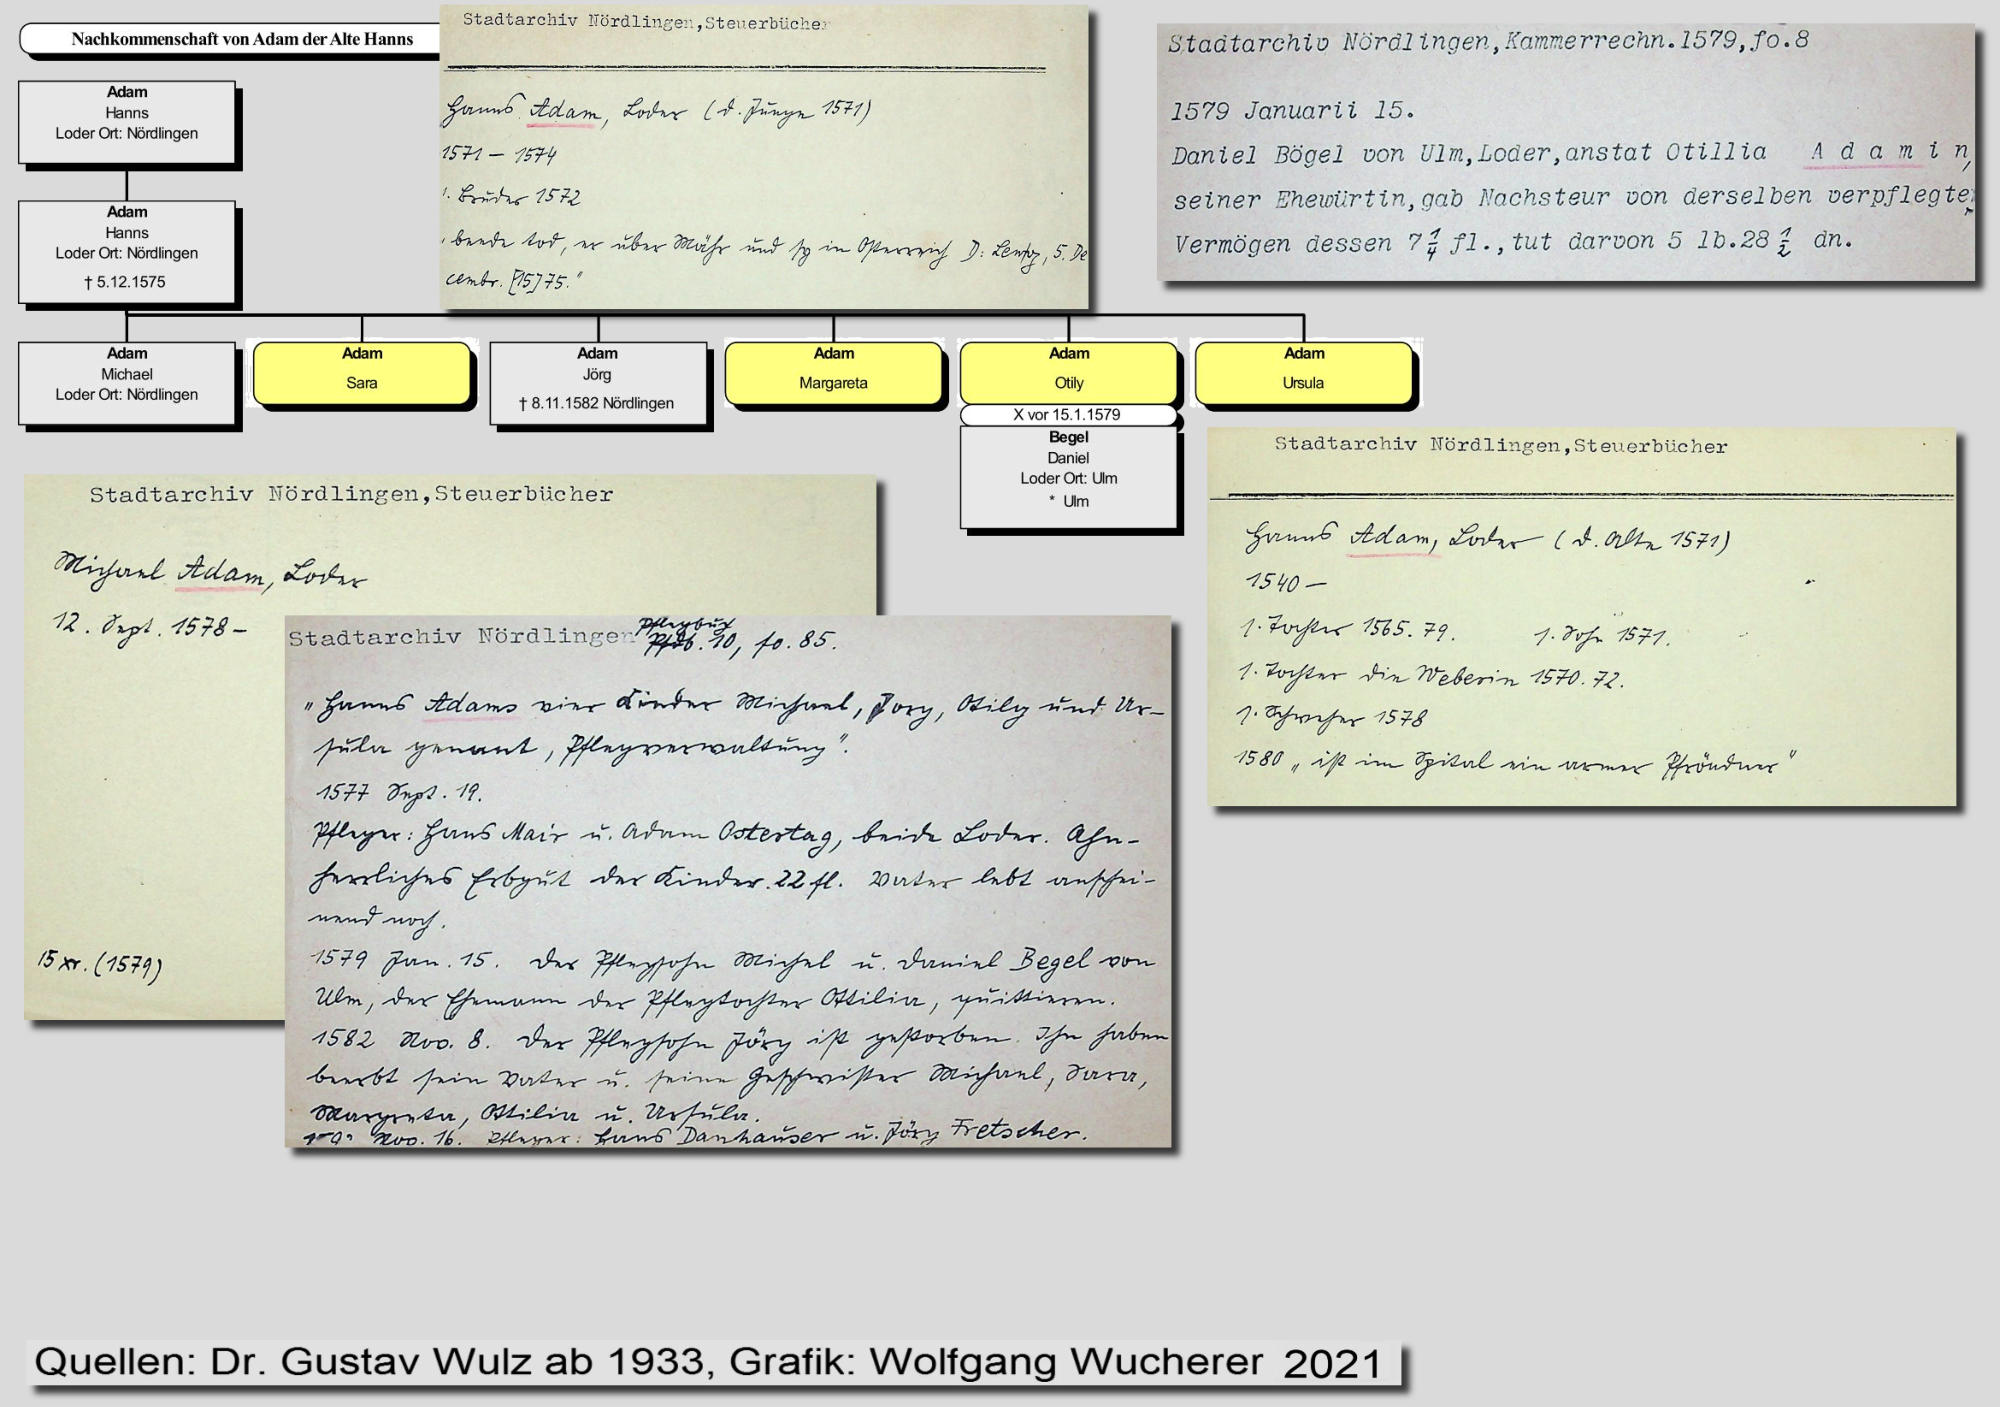 Nachkommenschaft von Adam der Alte Hanns
Adam
Hanns
Loder Ort: Nördlingen
Adam
Hanns
Loder Ort: Nördlingen
† 5.12.1575
Adam
Michael
Loder Ort: Nördlingen
Adam
Sara
Adam
Jörg
† 8.11.1582 Nördlingen
Adam
Margareta
Adam
Otily
X vor 15.1.1579
Begel
Daniel
Loder Ort: Ulm
* Ulm
Adam
Ursula
Stadtarchiv Nördlingen,Steuerbücher
Hanns Adam, Loder (d. Junge 1571)
1571 – 1574
1. Bruder 1572
beede tod, er über Mähr und sy in Österreich D: 5. De
cembr. [15]75."
Stadtarchiv Nördlingen,Kammerrechn.1579,fo.8
1579 Januarii 15.
Daniel Bögel von Ulm,Loder,anstat Otillia A d a m i n,
seiner Ehewürtin,gab Nachsteur von derselben verpflegte
Vermögen dessen 7 1/4 fl.,tut darvon 5 lb.28 1/2 dn.
Stadtarchiv Nördlingen,Steuerbücher
Michael Adam, Loder
12. Sept. 1578 –
15 xr. (1579)
Stadtarchiv Nördlingen Pflegbuch 10, fo. 85.
"Hanns Adams vier Kinder Michael, Jorg, Otily und Ur-
sula genant, Pflegverwaltung".
1577 Sept. 19.
Pfleger: Hans Mair u. Adam Ostertag, beide Loder. Ahn-
herrliches Erbgut der Kinder 22 fl. Vater lebt anschei-
nend noch.
1579 Jan. 15. Der Pflegsohn Michel u. Daniel Begel von
Ulm, der Ehemann der Pflegtochter Ottilia, quittieren.
1582 Nov. 8. Der Pflegsohn Jörg ist gestorben. Ihn haben
beerbt sein Vater u. seine Geschwister Michael, Sara,
Margreta, Ottilia u. Ursula.
Nov. 16. Pfleger: Hans Danhauser u. Jörg Fretscher.
Stadtarchiv Nördlingen,Steuerbücher
Hanns Adam, Loder (d. Alte 1571)
1540 –
1. Tochter 1565. 79. 1. Sohn 1571.
1. Tochter die Weberin 1570. 72.
1. Schweher 1578
1580 "ist im Spital ein armer Pfründner"
Quellen: Dr. Gustav Wulz ab 1933, Grafik: Wolfgang Wucherer 2021